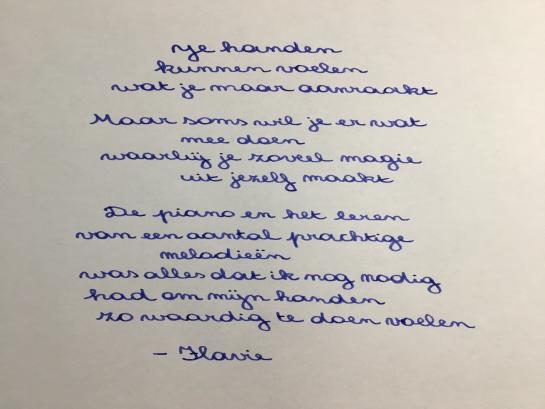 Je handen
kunnen voelen
wat je maar aanraakt
Maar soms wil je er wat
mee doen
waarbij je zoveel magie
uit jezelf maakt
De piano en het leren
van een aantal prachtige
melodieën
was alles dat ik nog nodig
had om mijn handen
zo waardig te doen voelen
- Flavie